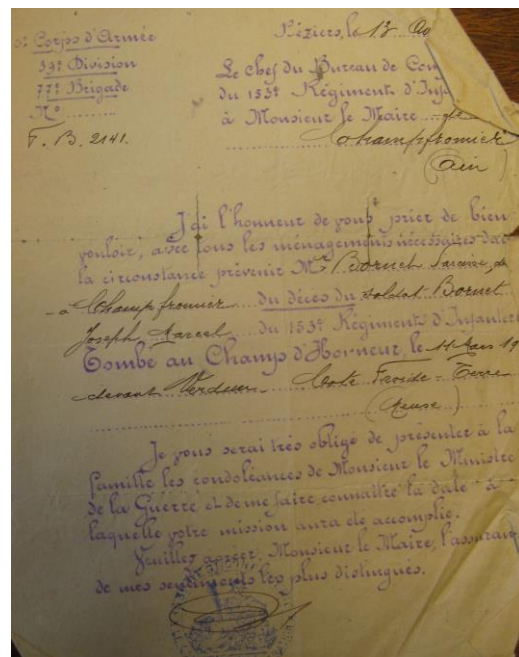 Corps d'Armée
39e Division
77e Brigade
No ..........
F. B. 2141.
Béziers, le 13
Le Chef du Bureau de
du 153e Régiment d'Inf
à Monsieur le Maire de
Champfromier
(Ain)
J'ai l'honneur de vous prier de bien
vouloir, avec tous les ménagements nécessaires dans
la circonstance prévenir Mr Bornet
à Champfromier du décès du soldat Bornet
Joseph Marcel du 153e Régiment d'Infanterie
Tombé au Champ d'Honneur, le 11 Mars 19
devant Verdun Cote Froide-Terre
(Meuse)
Je vous serai très obligé de présenter à la
famille les condoléances de Monsieur le Ministre
de la Guerre et de me faire connaître la date à
laquelle votre mission aura été accomplie.
Veuillez agréer, Monsieur le Maire, l'assuran
de mes sentiments les plus distingués.